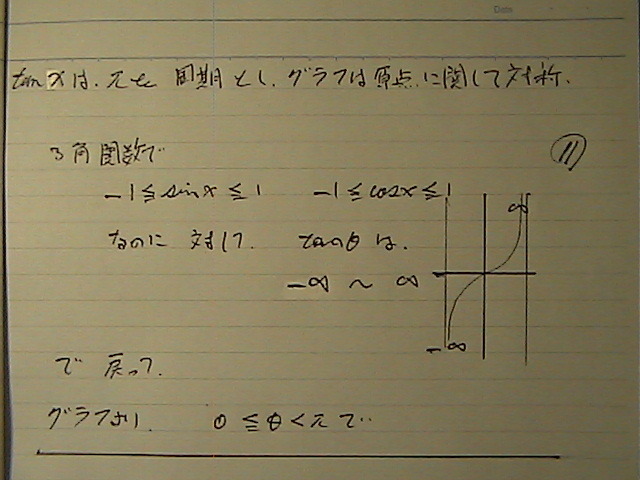 Date
tan xは、πを周期とし、グラフは原点に関して対称.
3角関数で
⑪
-1≦sinx≦1 -1≦cosx≦1
なのに対して、 tanθは、
-∞ ~ ∞
∞
-∞
で戻って、
グラフより、 0≦θ<πで‥